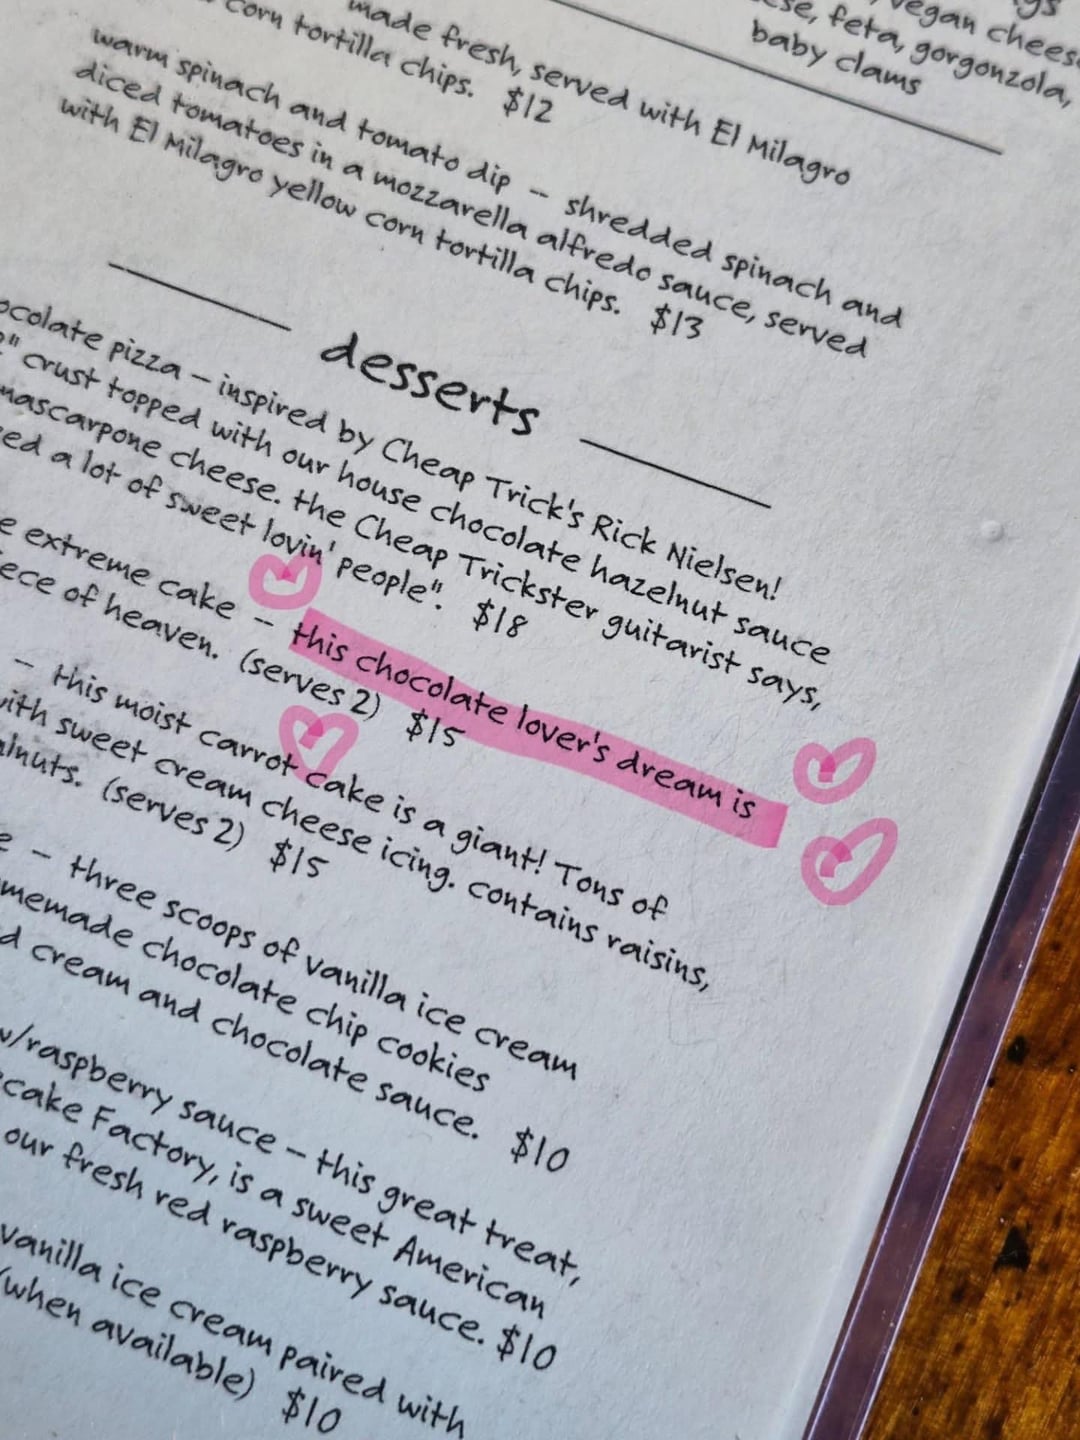 vegan chees
feta, gorgonzola,
baby clams
made fresh, served with El Milagro
corn tortilla chips. $12
warm spinach and tomato dip – shredded spinach and
diced tomatoes in a mozzarella alfredo sauce, served
with El Milagro yellow corn tortilla chips. $13
desserts
ocolate pizza – inspired by Cheap Trick's Rick Nielsen!
" crust topped with our house chocolate hazelnut sauce
mascarpone cheese. the Cheap Trickster guitarist says,
ed a lot of sweet lovin' people". $18
e extreme cake – this chocolate lover's dream is
ece of heaven. (serves 2) $15
– this moist carrot cake is a giant! Tons of
ith sweet cream cheese icing. contains raisins,
lnuts. (serves 2) $15
e – three scoops of vanilla ice cream
memade chocolate chip cookies
d cream and chocolate sauce. $10
w/raspberry sauce – this great treat,
cake Factory, is a sweet American
our fresh red raspberry sauce. $10
vanilla ice cream paired with
(when available) $10